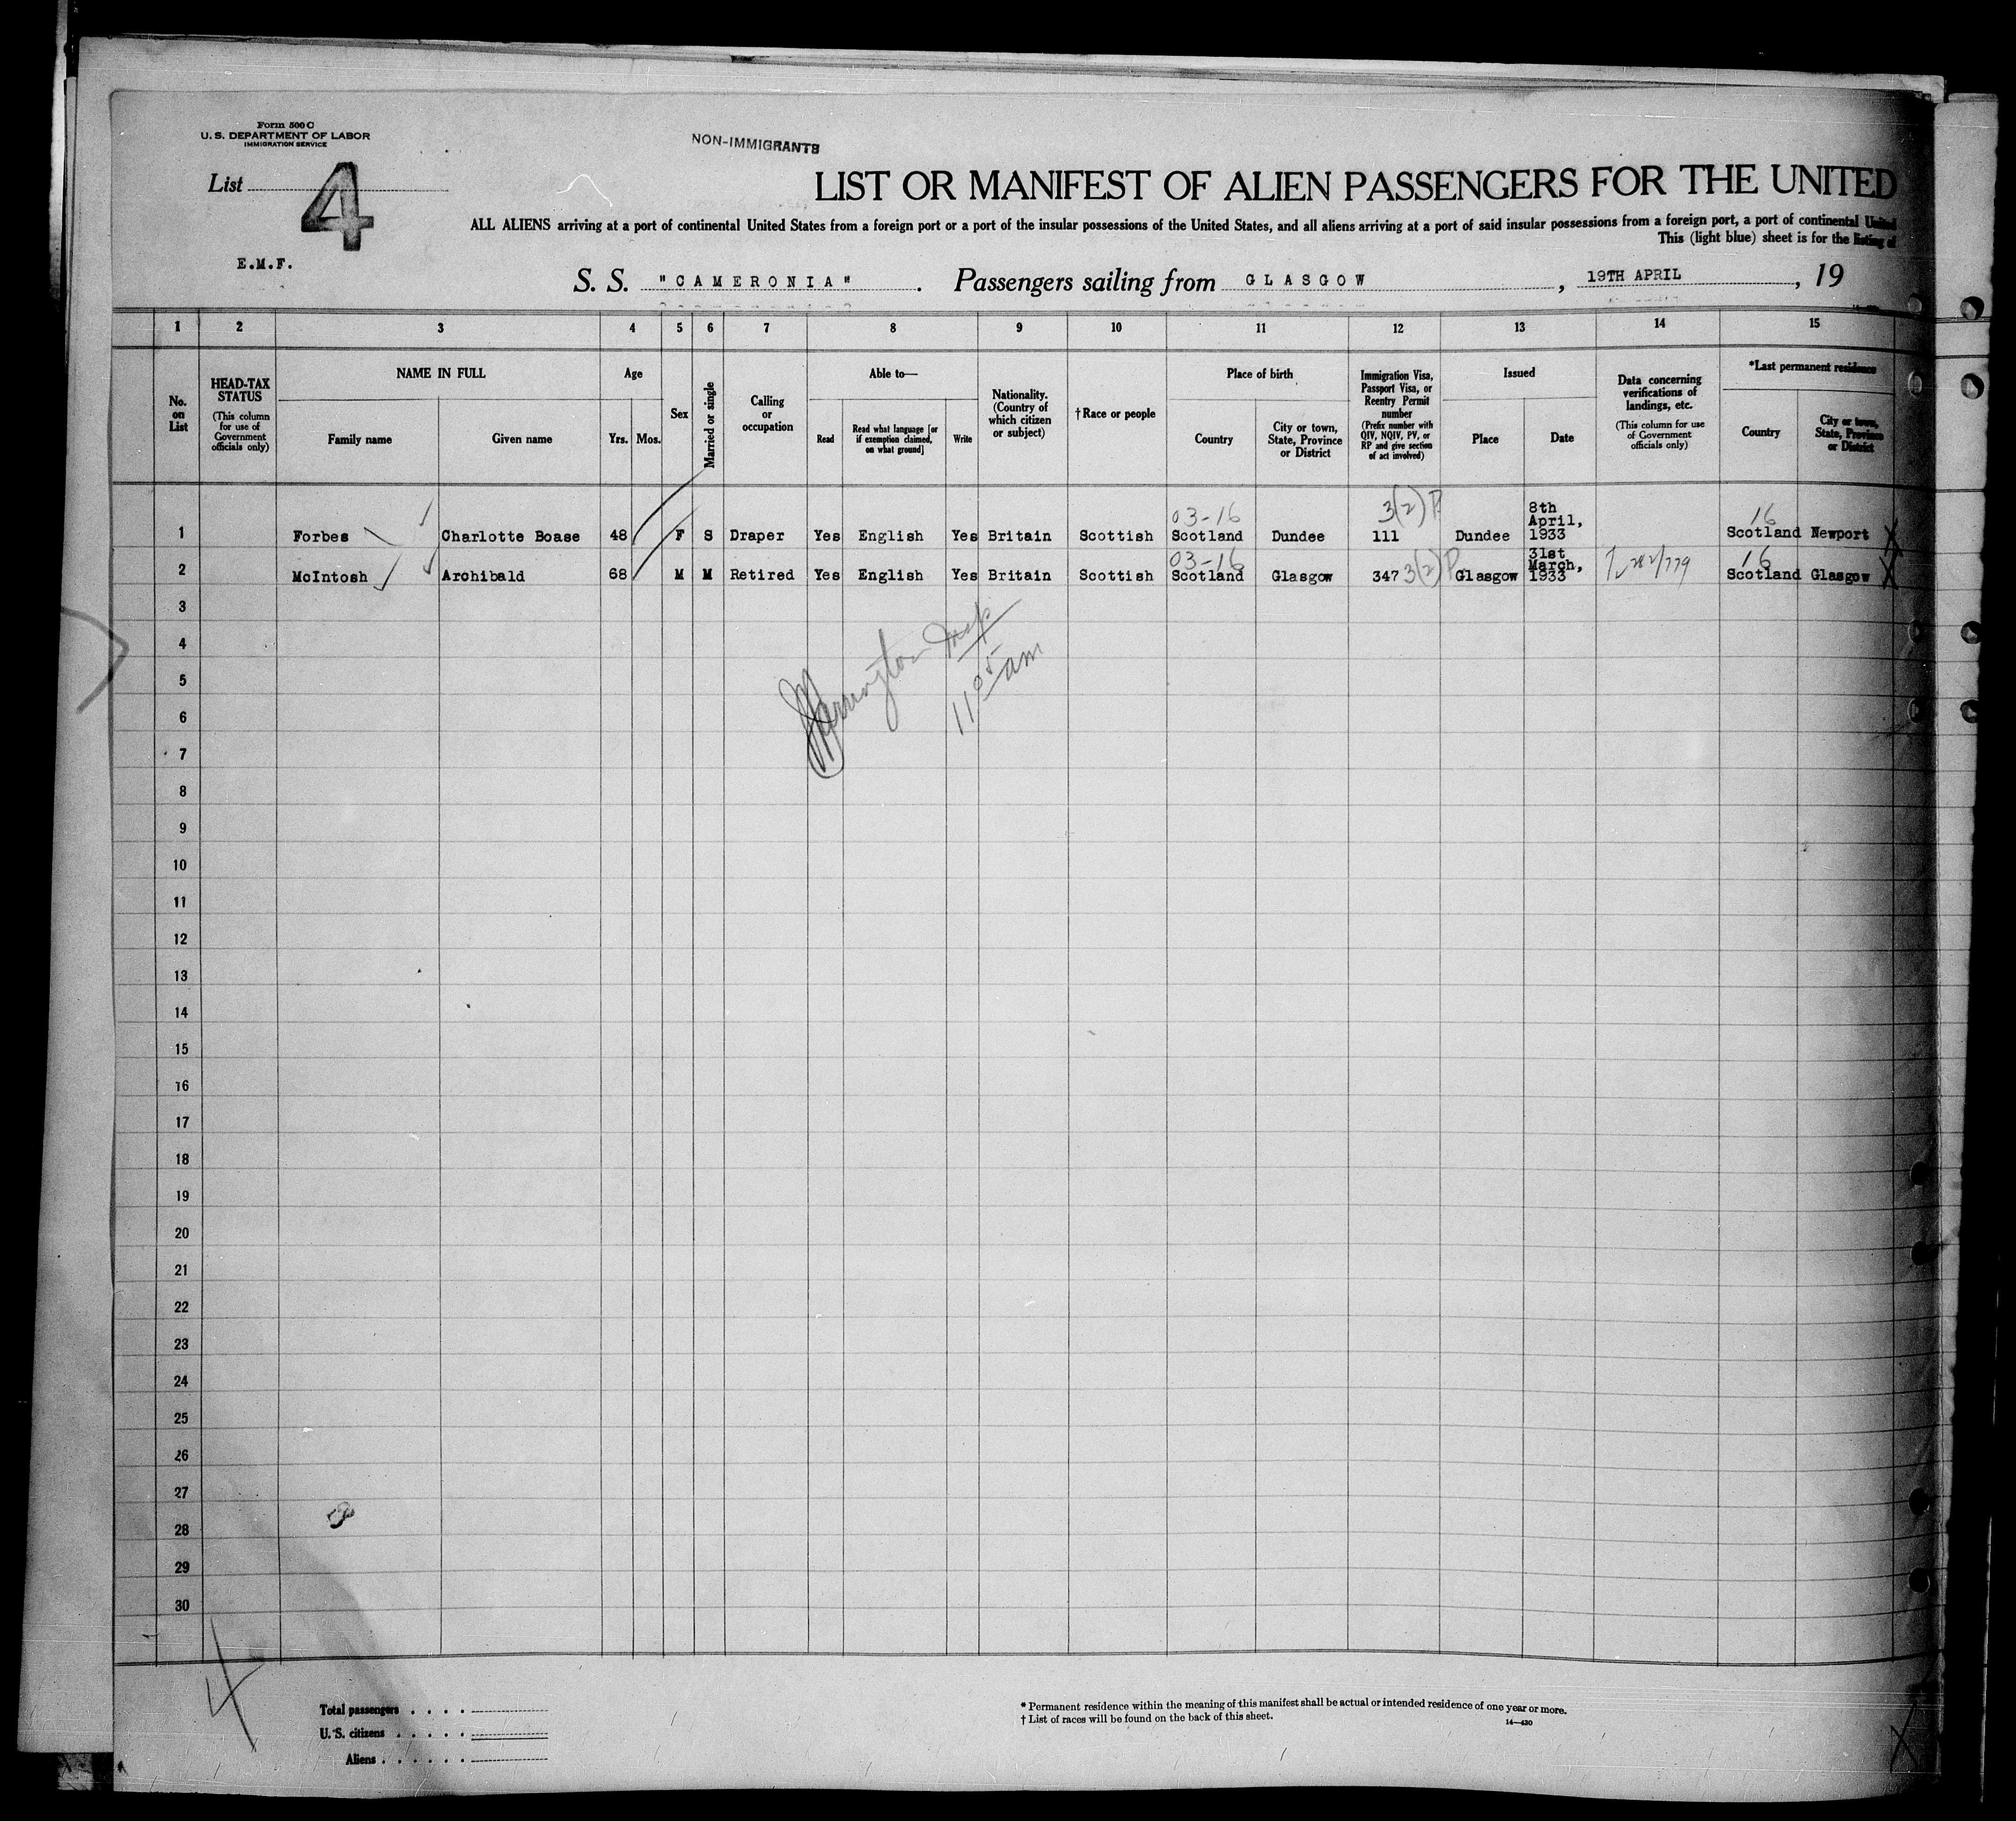 Form 500 C
U. S. DEPARTMENT OF LABOR
IMMIGRATION SERVICE
NON-IMMIGRANTS
List 4
LIST OR MANIFEST OF ALIEN PASSENGERS FOR THE UNITED
ALL ALIENS arriving at a port of continental United States from a foreign port or a port of the insular possessions of the United States, and all aliens arriving at a port of said insular possessions from a foreign port, a port of continental United
This (light blue) sheet is for the listing of
E.M.F.
S. S. "CAMERONIA". Passengers sailing from GLASGOW, 19TH APRIL, 19
1 2 3 4 5 6 7 8 9 10 11 12 13 14 15
No. on List
HEAD-TAX STATUS
(This column for use of Government officials only)
NAME IN FULL
Family name
Given name
Age
Yrs. Mos.
Sex
Married or single
Calling or occupation
Able to—
Read
Read what language [or if exemption claimed, on what ground]
Write
Nationality. (Country of which citizen or subject)
†Race or people
Place of birth
Country
City or town, State, Province or District
Immigration Visa, Passport Visa, or Reentry Permit number
(Prefix number with QIV, NQIV, PV, or RP and give section of act involved)
Issued
Place
Date
Data concerning verifications of landings, etc.
(This column for use of Government officials only)
*Last permanent residence
Country
City or town, State, Province or District
03-16 3(2) P 16
1 Forbes Charlotte Boase 48 F S Draper Yes English Yes Britain Scottish Scotland Dundee 111 Dundee 8th April, 1933 Scotland Newport X
03-16 16
2 McIntosh Archibald 68 M M Retired Yes English Yes Britain Scottish Scotland Glasgow 347 3(2) P Glasgow 31st March, 1933 Scotland Glasgow X
3
4
5
11 05 am
6
7
8
9
10
11
12
13
14
15
16
17
18
19
20
21
22
23
24
25
26
27
28
29
30
4
Total passengers . . . .
U. S. citizens . . . . .
Aliens . . . . . .
* Permanent residence within the meaning of this manifest shall be actual or intended residence of one year or more.
† List of races will be found on the back of this sheet.
14—430
X